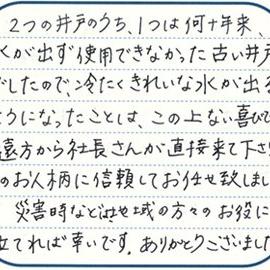 ２つの井戸のうち、１つは何十年来、
水が出ず使用できなかった古い井戸
でしたので、冷たくきれいな水が出る
ようになったことは、この上ない喜びで
遠方から社長さんが直接来て下さり
のお人柄に信頼してお任せ致しまし
災害時など地域の方々のお役に
立てれば幸いです。ありがとうございました